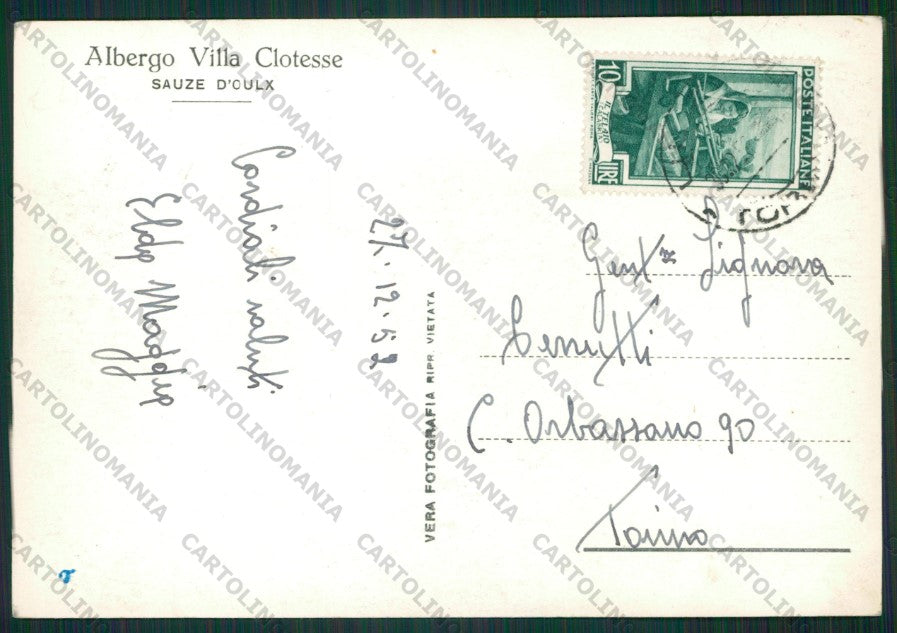 Albergo Villa Clotesse
SAUZE D'OULX
Cordiali saluti
Elda
27.12.52
VERA FOTOGRAFIA RIPR. VIETATA
10 LIRE
IL TELAIO
POSTE ITALIANE
Gent Signora
Cerrutti
C. Orbassano 90
Torino
CARTOLINOMANIA